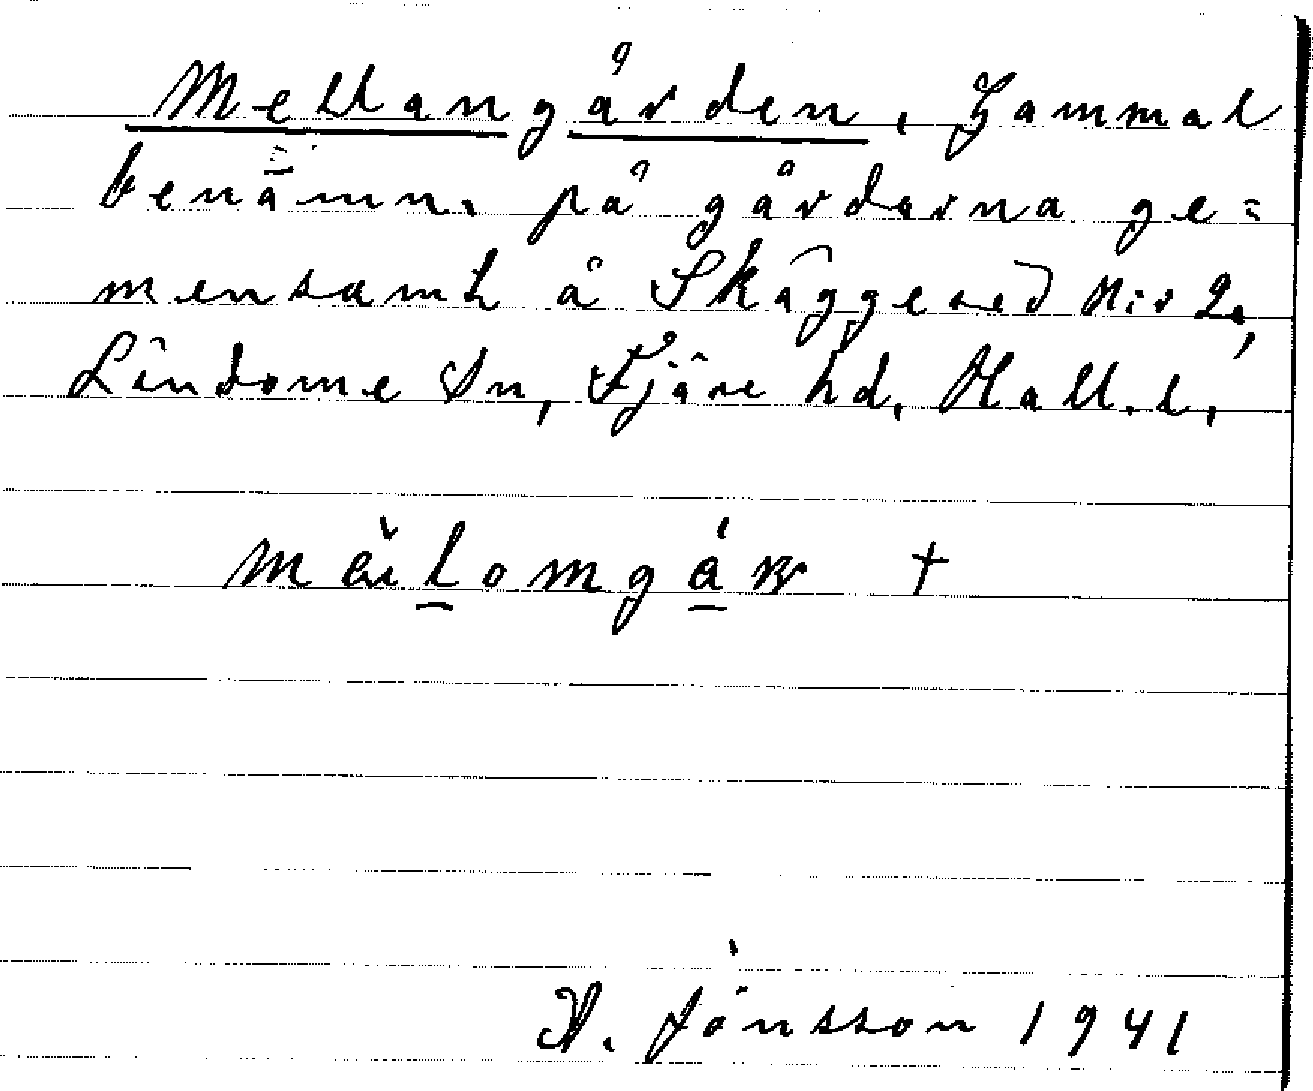 Mellangården, Gammal
benämn. på gårdarna ge=
mensamt å Skäggered N:r 2,
Lindome Sn, Fjäre hd, Hall. l.
†
A. Jönsson 1941